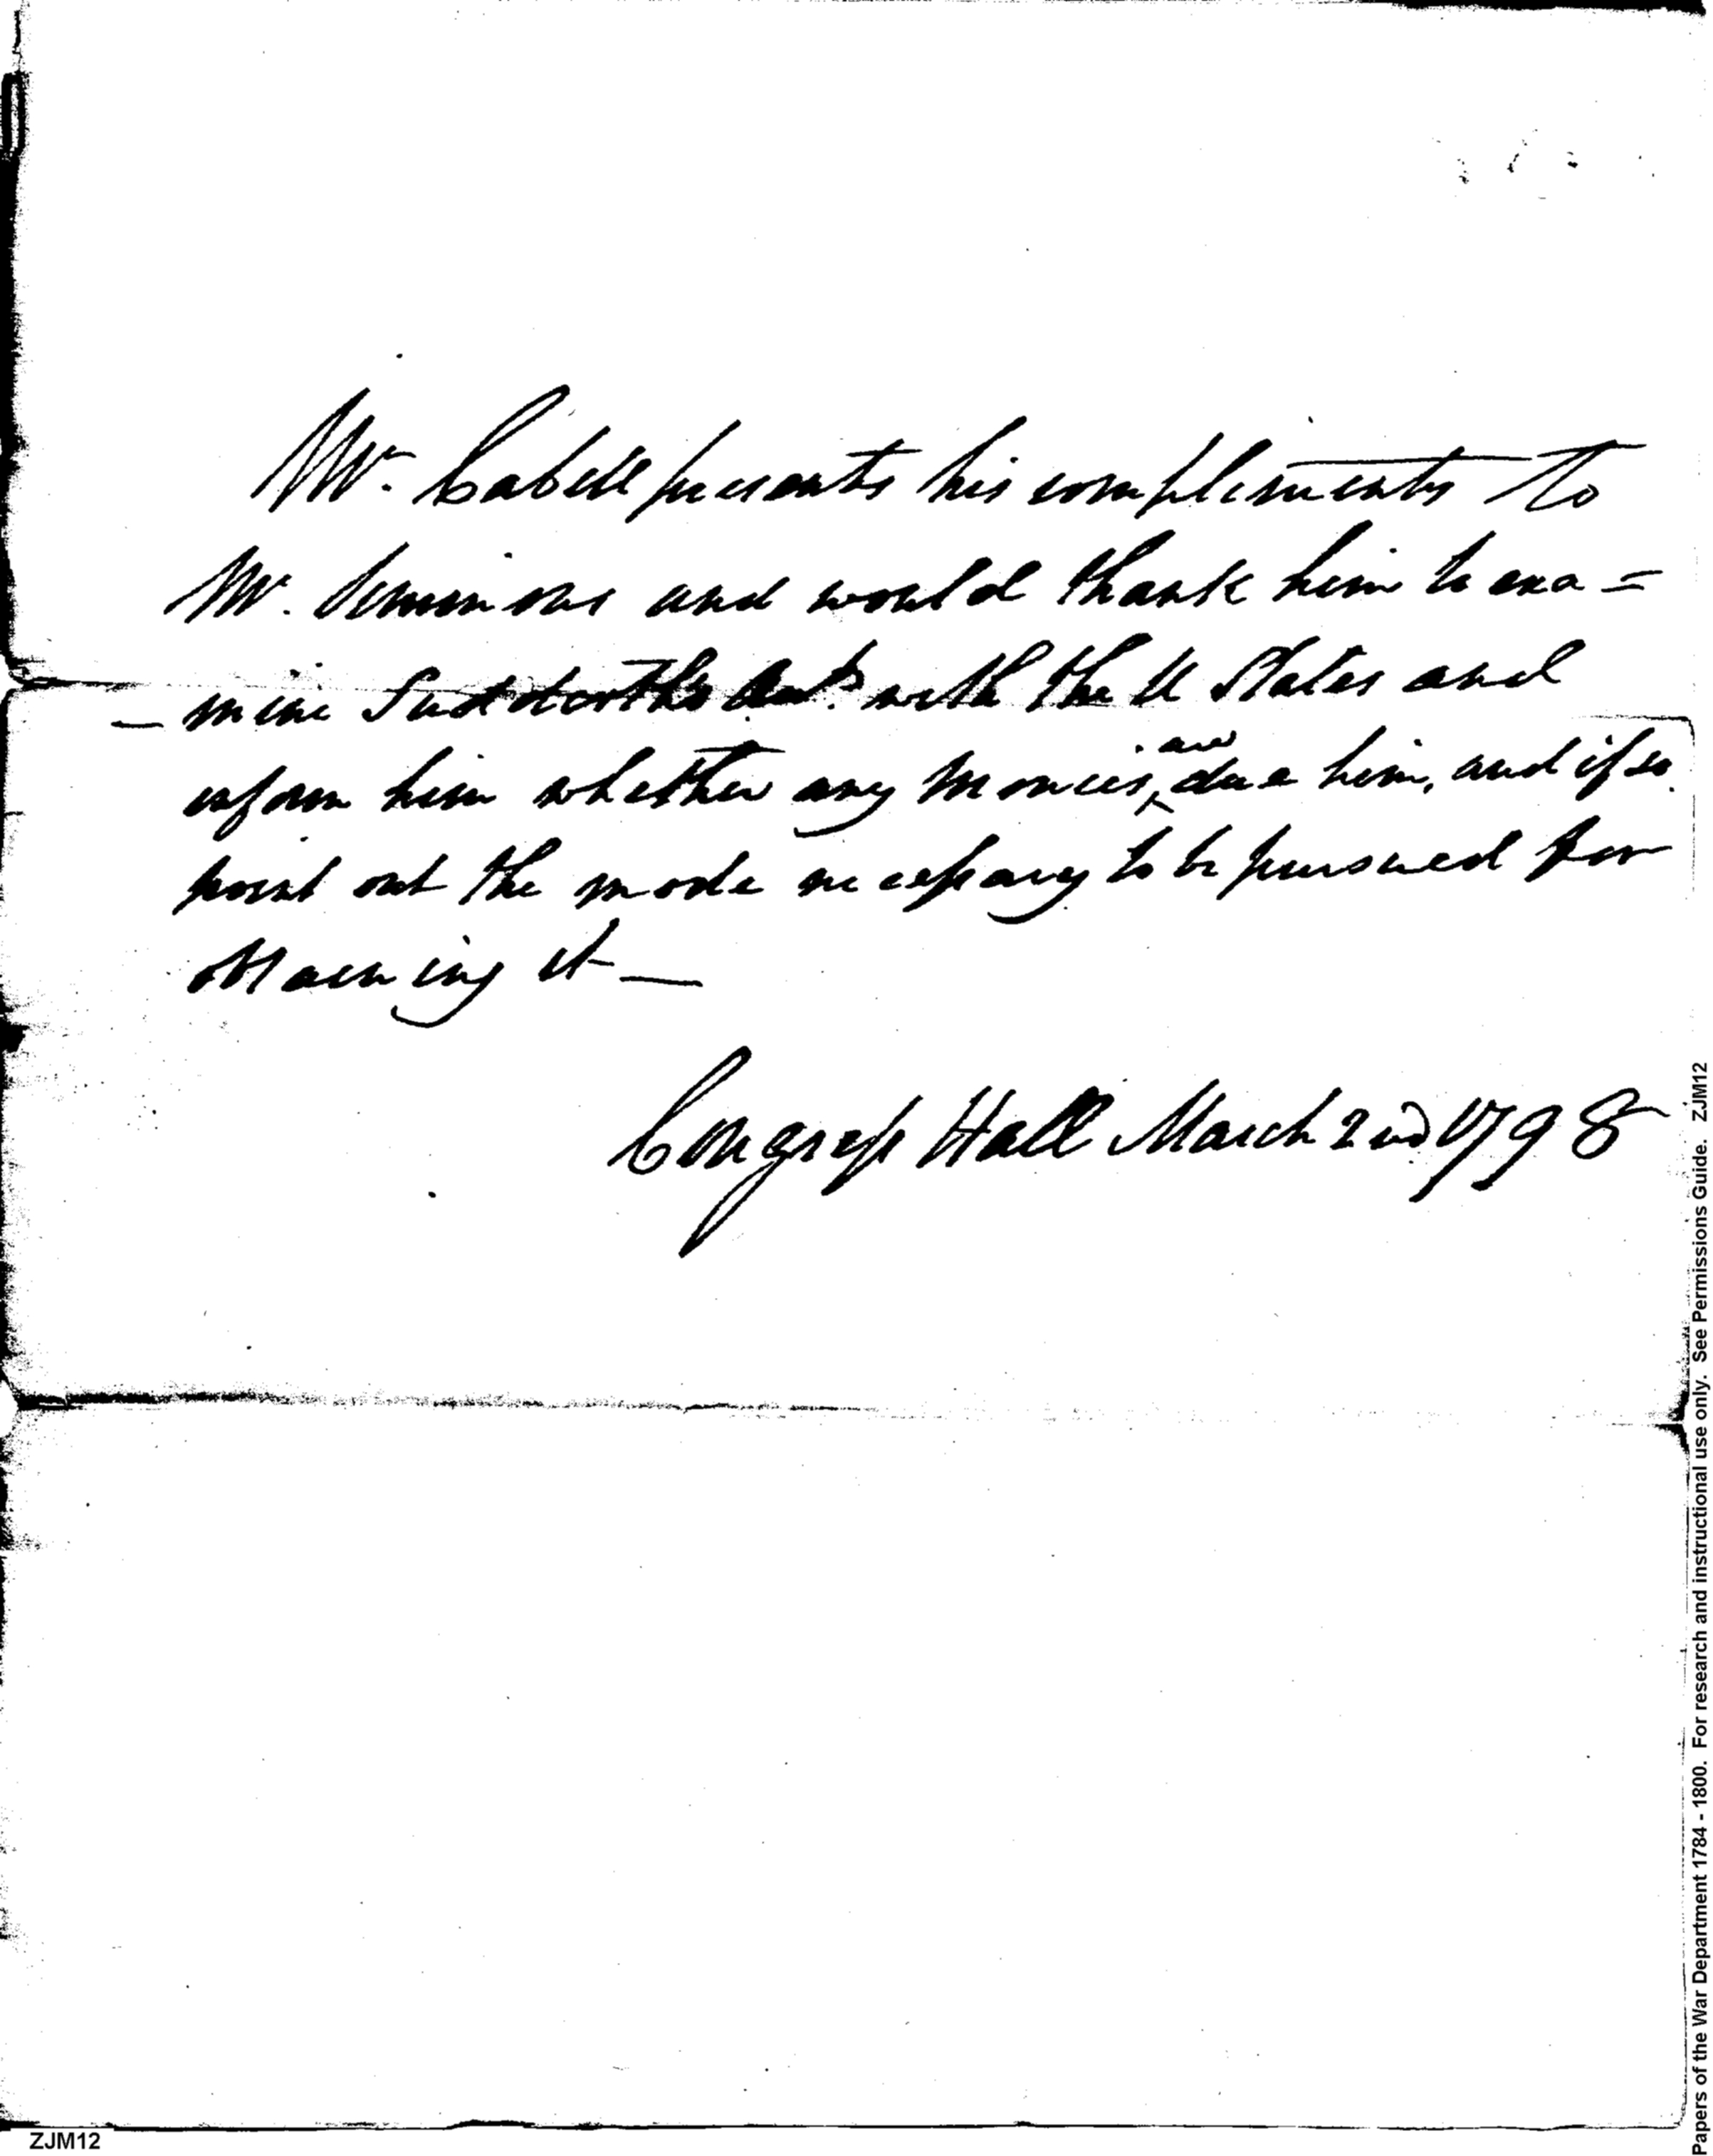 Mr. Cabell presents his compliments to
Mr. Simmons and would thank him to exa=
– mine Suddorths Acts. with the U States and
inform him whether any monies, are due him, and if so
point out the mode necessary to be pursued for
obtaining it —
Congress Hall March 2nd 1798
ZJM12
Papers of the War Department 1784 - 1800. For research and instructional use only. See Permissions Guide. ZJM12